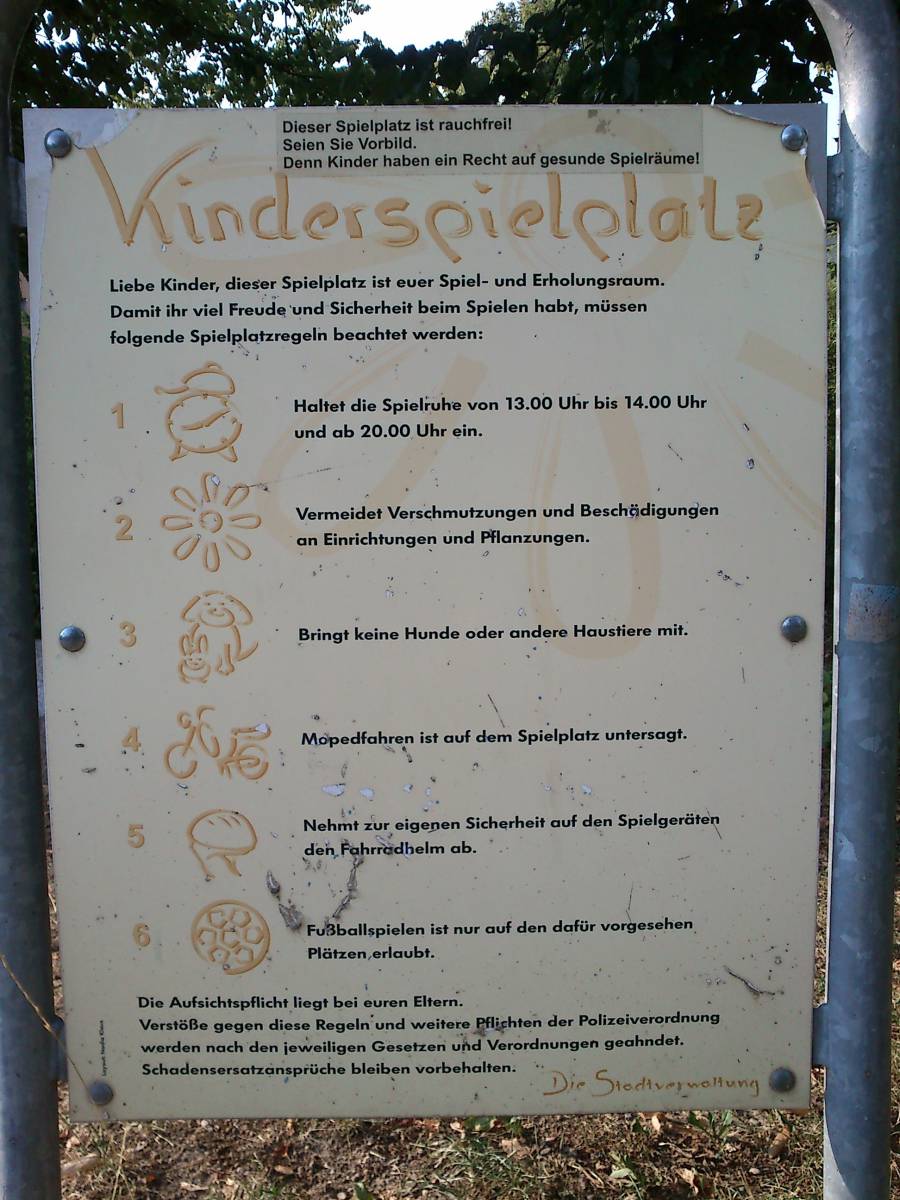 Dieser Spielplatz ist rauchfrei!
Seien Sie Vorbild.
Denn Kinder haben ein Recht auf gesunde Spielräume!
Kinderspielplatz
Liebe Kinder, dieser Spielplatz ist euer Spiel- und Erholungsraum.
Damit ihr viel Freude und Sicherheit beim Spielen habt, müssen
folgende Spielplatzregeln beachtet werden:
1 Haltet die Spielruhe von 13.00 Uhr bis 14.00 Uhr
und ab 20.00 Uhr ein.
2 Vermeidet Verschmutzungen und Beschädigungen
an Einrichtungen und Pflanzungen.
3 Bringt keine Hunde oder andere Haustiere mit.
4 Mopedfahren ist auf dem Spielplatz untersagt.
5 Nehmt zur eigenen Sicherheit auf den Spielgeräten
den Fahrradhelm ab.
6 Fußballspielen ist nur auf den dafür vorgesehen
Plätzen erlaubt.
Die Aufsichtspflicht liegt bei euren Eltern.
Verstöße gegen diese Regeln und weitere Pflichten der Polizeiverordnung
werden nach den jeweiligen Gesetzen und Verordnungen geahndet.
Schadensersatzansprüche bleiben vorbehalten.
Die Stadtverwaltung